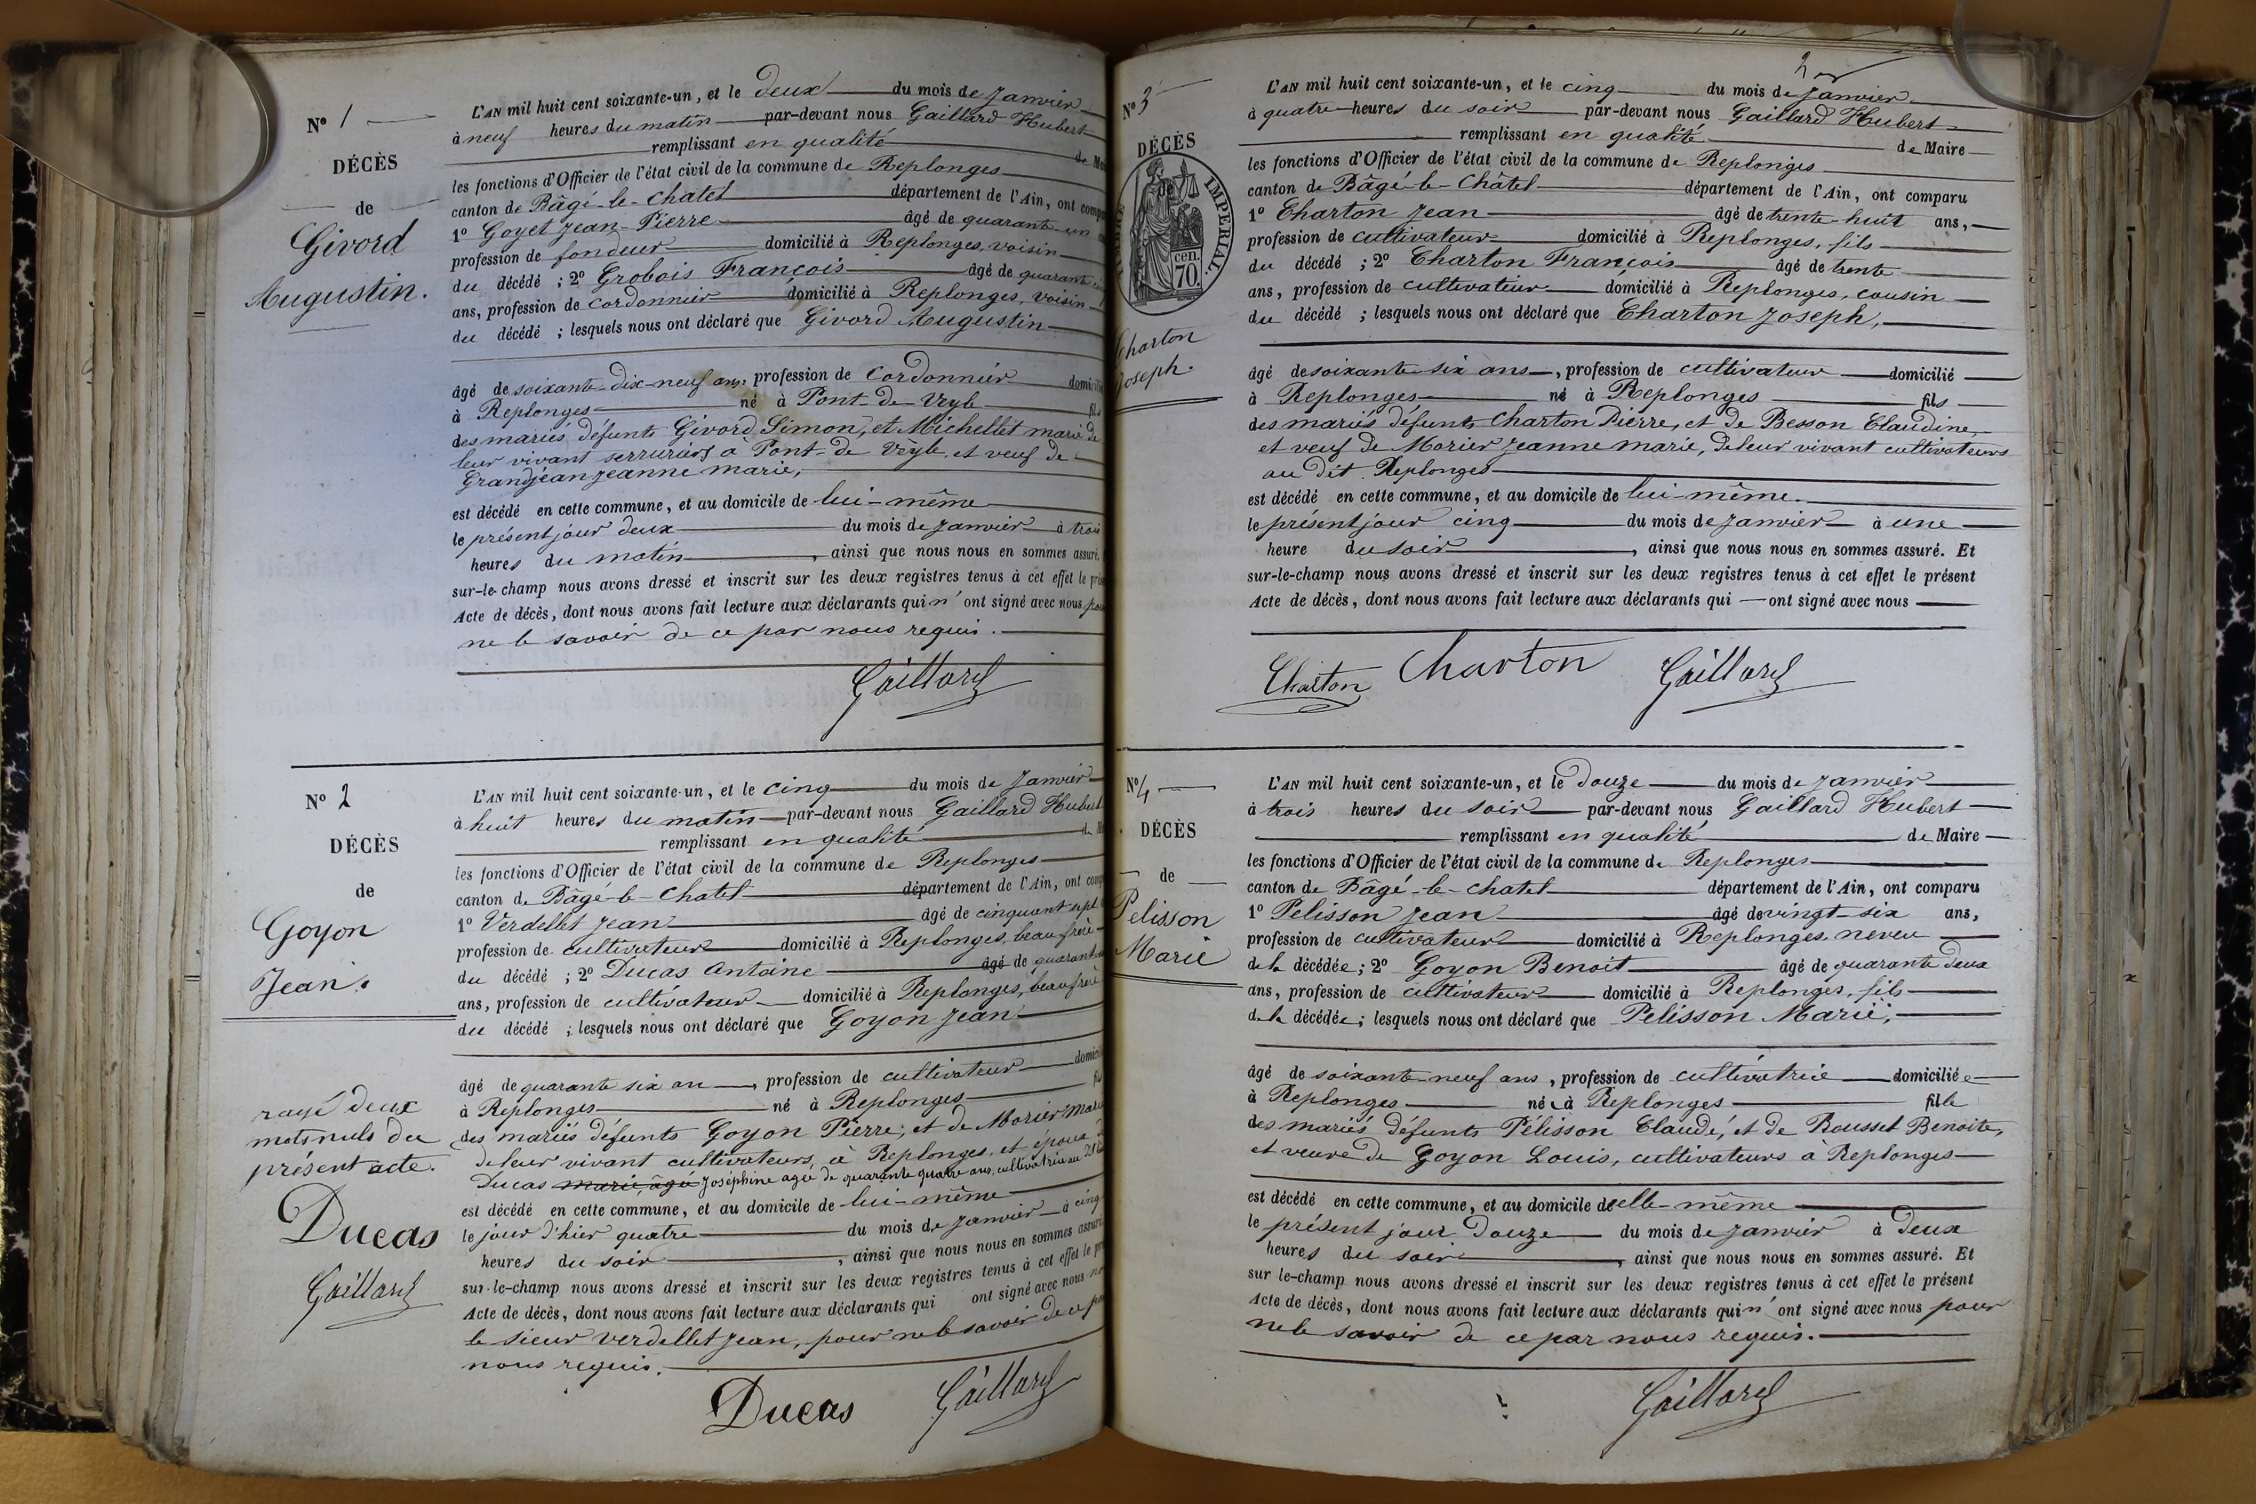 N° 1
DÉCÈS
de
Givord
Augustin.
L'AN mil huit cent soixante-un, et le deux du mois de Janvier
à neuf heures du matin par-devant nous Gaillard Hubert
remplissant en qualité de
les fonctions d'Officier de l'état civil de la commune de Replonges
canton de Bâgé-le-chatel département de l'Ain, ont
1° Goyet Jean-Pierre âgé de quarante-un
profession de fondeur domicilié à Replonges, voisin
du décédé ; 2° Grobois François âgé de quarante
ans, profession de cordonnier domicilié à Replonges, voisin
du décédé ; lesquels nous ont déclaré que Givord Augustin
âgé de soixante-dix-neuf ans, profession de cordonnier
à Replonges né à Pont-de-Veyle fils
des mariés défunts Givord Simon, et Michellet marie de
leur vivant serruriers à Pont-de-Vèyle, et veuf de
Grandjean Jeanne marie,
est décédé en cette commune, et au domicile de lui-même
le présent jour deux du mois de Janvier à trois
heures du matin, ainsi que nous nous en sommes assuré.
sur-le-champ nous avons dressé et inscrit sur les deux registres tenus à cet effet le
Acte de décès, dont nous avons fait lecture aux déclarants qui n'ont signé avec nous pour
ne le savoir de ce par nous requis.
Gaillard
N° 2
DÉCÈS
de
Goyon
Jean.
L'AN mil huit cent soixante-un, et le cinq du mois de Janvier
à huit heures du matin par-devant nous Gaillard Hubert
remplissant en qualité de
les fonctions d'Officier de l'état civil de la commune de Replonges
canton de Bâgé-le-chatel département de l'Ain, ont
1° Verdellet Jean âgé de cinquant sept
profession de cultivateur domicilié à Replonges, beau frère
du décédé ; 2° Ducas Antoine âgé de
ans, profession de cultivateur domicilié à Replonges, beau frère
du décédé ; lesquels nous ont déclaré que Goyon Jean
âgé de quarante six an, profession de cultivateur
à Replonges né à Replonges
des mariés défunts Goyon Pierre, et de Morier Marie
de leur vivant cultivateurs, à Replonges, et époux
Ducas marie, âgée Joséphine agée de quarante quatre ans, cultivatrice au
est décédé en cette commune, et au domicile de lui-même
le jour d'hier quatre du mois de Janvier à cinq
heures du soir, ainsi que nous nous en sommes assuré
sur-le-champ nous avons dressé et inscrit sur les deux registres tenus à cet effet le
Acte de décès, dont nous avons fait lecture aux déclarants qui ont signé avec nous
le sieur Verdellet Jean, pour ne le savoir de ce par
nous requis.
Ducas Gaillard
rayé deux
mots nuls du
présent acte.
Ducas
Gaillard
2
N° 3
DÉCÈS
IMPERIAL.
70 cen.
Charton
Joseph.
L'AN mil huit cent soixante-un, et le cinq du mois de Janvier
à quatre heures du soir par-devant nous Gaillard Hubert
remplissant en qualité de Maire
les fonctions d'Officier de l'état civil de la commune de Replonges
canton de Bâgé-le-Châtel département de l'Ain, ont comparu
1° Charton Jean âgé de trente-huit ans,
profession de cultivateur domicilié à Replonges, fils
du décédé ; 2° Charton François âgé de trente
ans, profession de cultivateur domicilié à Replonges, cousin
du décédé ; lesquels nous ont déclaré que Charton Joseph,
âgé de soixante six ans, profession de cultivateur domicilié
à Replonges né à Replonges fils
des mariés défunts Charton Pierre, et de Besson Claudine,
et veuf de Morier Jeanne marie, de leur vivant cultivateurs
au dit Replonges
est décédé en cette commune, et au domicile de lui-même.
le présent jour cinq du mois de Janvier à une
heure du soir, ainsi que nous nous en sommes assuré. Et
sur-le-champ nous avons dressé et inscrit sur les deux registres tenus à cet effet le présent
Acte de décès, dont nous avons fait lecture aux déclarants qui ont signé avec nous
Charton Charton Gaillard
N° 4
DÉCÈS
de
Pelisson
Marie
L'AN mil huit cent soixante-un, et le Douze du mois de Janvier
à trois heures du soir par-devant nous Gaillard Hubert
remplissant en qualité de Maire
les fonctions d'Officier de l'état civil de la commune de Replonges
canton de Bâgé-le-chatel département de l'Ain, ont comparu
1° Pelisson Jean âgé de vingt-six ans,
profession de cultivateur domicilié à Replonges, neveu
de la décédée ; 2° Goyon Benoit âgé de quarante deux
ans, profession de cultivateur domicilié à Replonges, fils
de la décédée ; lesquels nous ont déclaré que Pelisson Marie,
âgé de soixante-neuf ans, profession de cultivatrice domiciliée
à Replonges née à Replonges fille
des mariés défunts Pélisson Claude, et de Rousset Benoite,
et veuve de Goyon Louis, cultivateurs à Replonges
est décédé en cette commune, et au domicile d'elle-même
le présent jour Douze du mois de Janvier à Deux
heures du soir, ainsi que nous nous en sommes assuré. Et
sur le-champ nous avons dressé et inscrit sur les deux registres tenus à cet effet le présent
Acte de décès, dont nous avons fait lecture aux déclarants qui n'ont signé avec nous pour
ne le savoir de ce par nous requis.
Gaillard